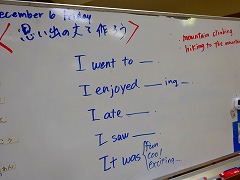 December 6 Friday
思い出の文を作ろう
• mountain climbing
hiking to the mountain
I went to __.
I enjoyed __ing __.
I ate __.
I saw __.
It was { fun
cool
exciting...